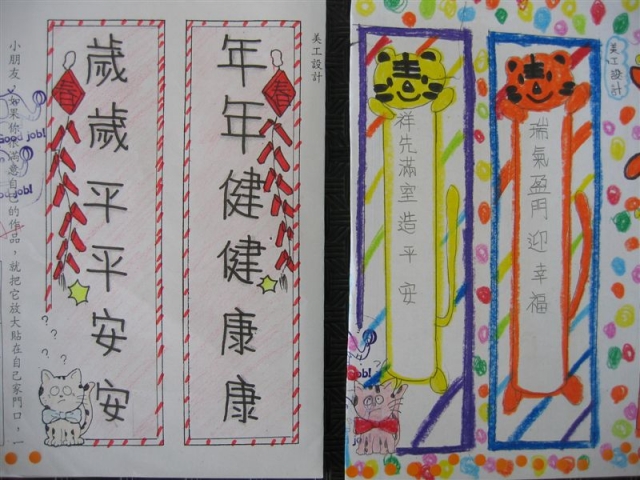 美工設計
年年健健康康
春
歲歲平平安安
春
小朋友，如果你很滿意自己的作品，就把它放大貼在自己家門口，一
Good job!
job!
美工設計
瑞氣盈門迎幸福
祥先滿室造平安
job!